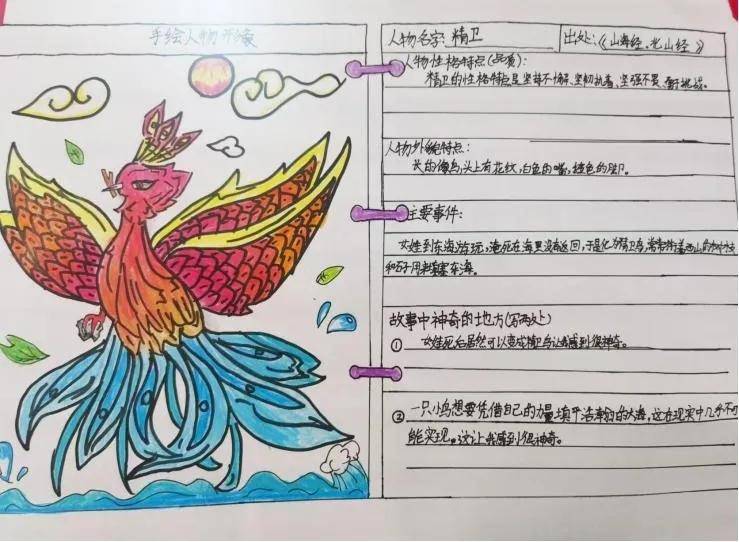 手绘人物形象
人物名字: 精卫
出处:《山海经·北山经》
人物性格特点(品质):
精卫的性格特点是坚持不懈、坚韧执着、坚强不畏、勇于挑战。
人物外貌特点:
长的像鸟,头上有花纹,白色的嘴,红色的脚。
主要事件:
女娃到东海游玩,淹死在海里没有返回,于是化为精卫鸟,常常衔着西山的树枝
和石子用来填塞东海。
故事中神奇的地方(写两处)
① 女娃死后居然可以变成精卫鸟让我感到很神奇。
② 一只小鸟想要凭借自己的力量填平浩瀚的大海,这在现实中几乎不可
能实现。这让我感到很神奇。